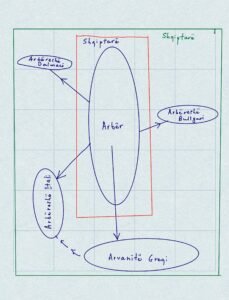 Shqiptarë
Shqiptarë
Arbëreshë
Dalmaci
Arbër
Arbëreshë
Bullgari
Arbëreshë Itali
Arvanitë Greqi